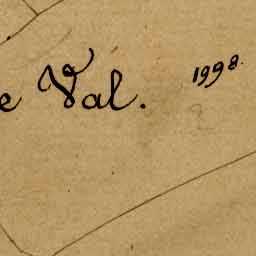 e Val. 1998.